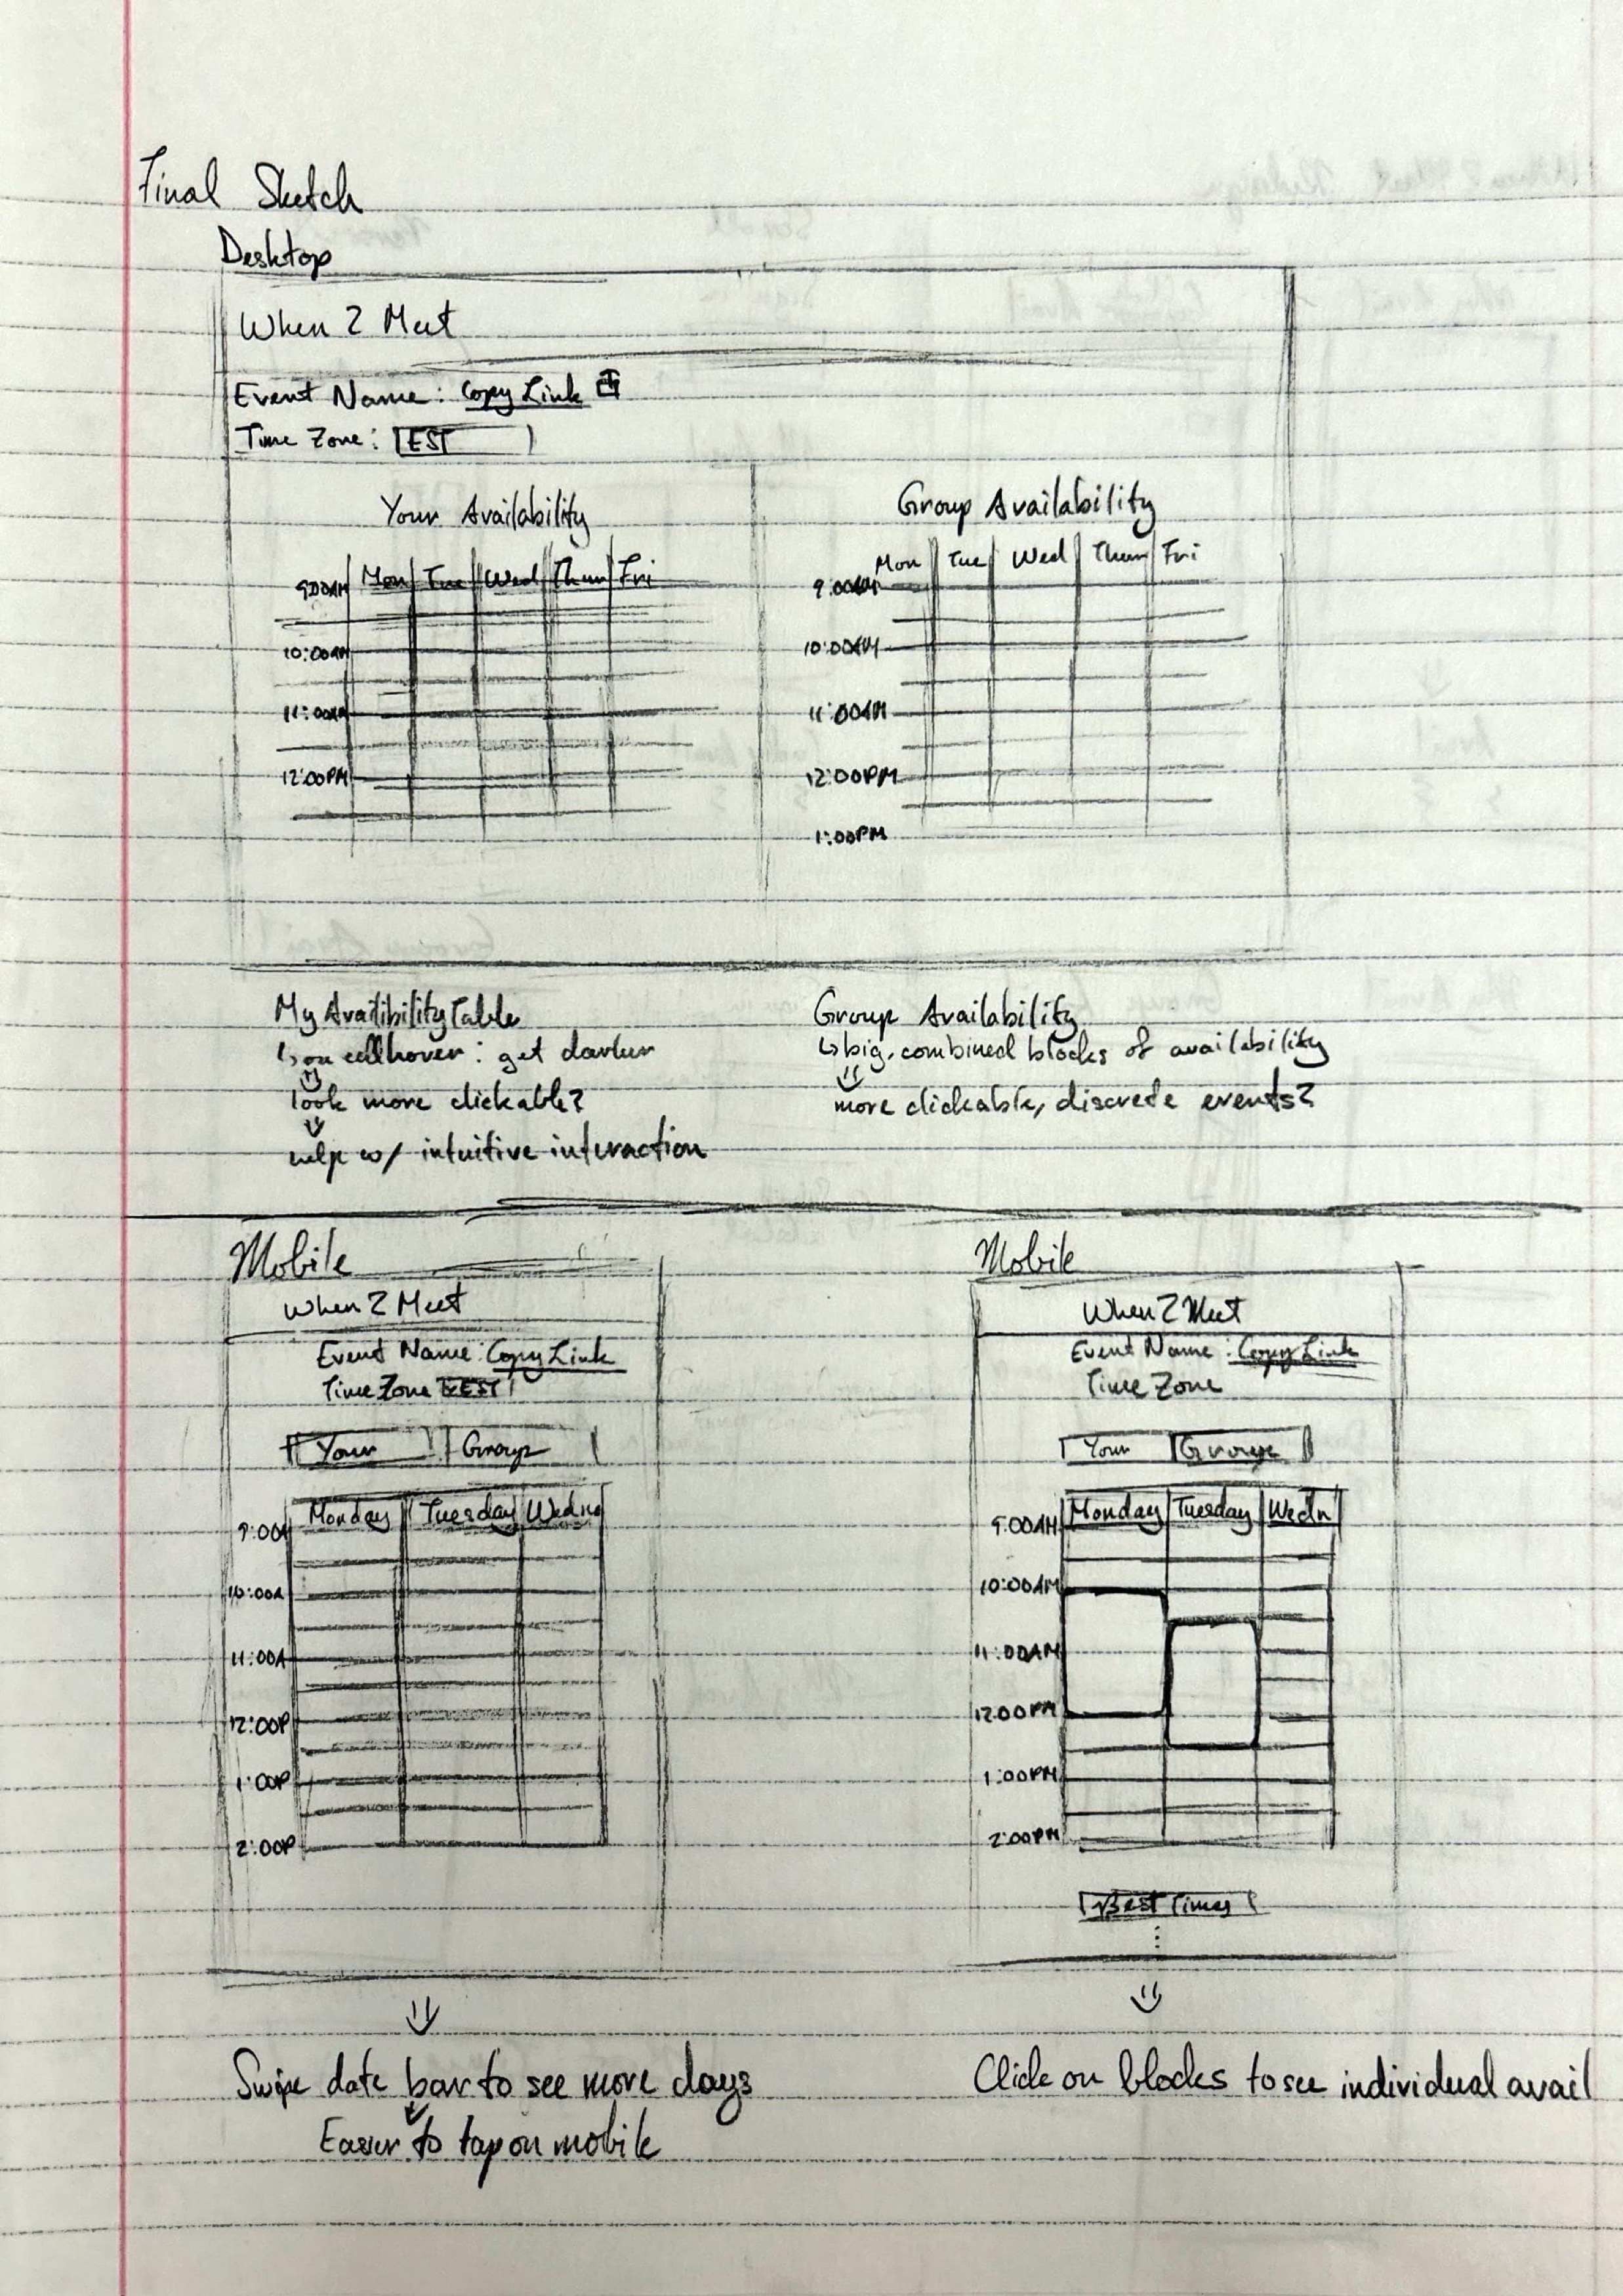 Final Sketch
Desktop
When 2 Meet
Event Name: Copy Link
Time Zone: EST
Your Availability
Mon Tue Wed Thur Fri
9:00AM
10:00AM
11:00AM
12:00PM
Group Availability
Mon Tue Wed Thur Fri
9:00AM
10:00AM
11:00AM
12:00PM
1:00PM
My Availibility Table
on cell hover: get darker
look more clickable?
help w/ intuitive interaction
Group Availability
big, combined blocks of availability
more clickable, discrete events?
Mobile
When 2 Meet
Event Name: Copy Link
Time Zone EST
Your Group
Monday Tuesday Wedne
9:00A
10:00A
11:00A
12:00P
1:00P
2:00P
Swipe date bar to see more days
Easier to tap on mobile
Mobile
When 2 Meet
Event Name: Copy Link
Time Zone
Your Group
Monday Tuesday Wedn
9:00AM
10:00AM
11:00AM
12:00PM
1:00PM
2:00PM
Best Times
Click on blocks to see individual avail